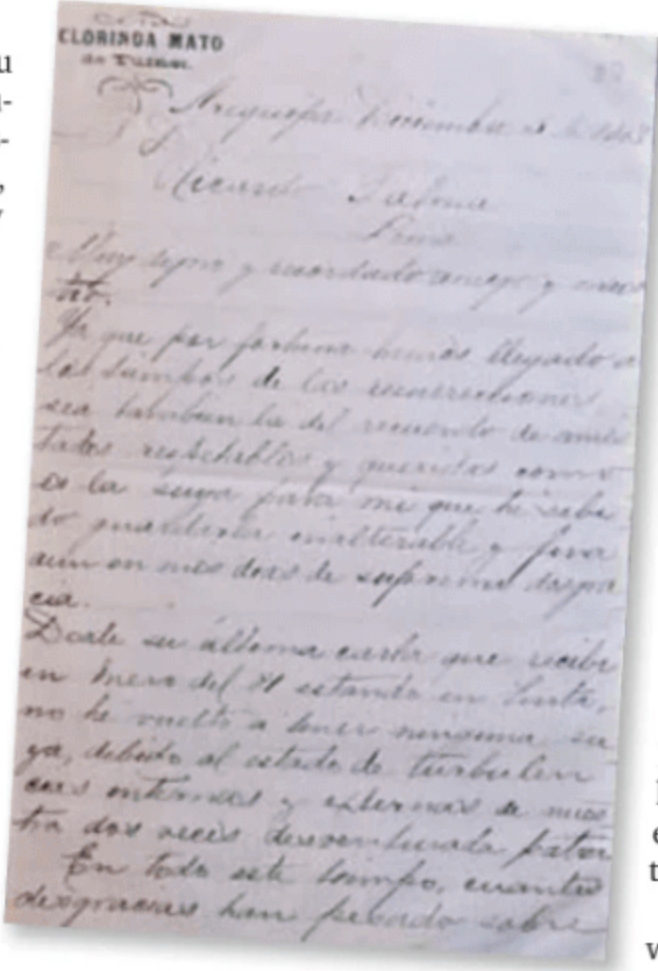 CLORINDA MATO
de Turner.
Arequipa Diciembre de 1883
Ricardo Palma
Lima
Muy digno y recordado amigo y maes
tro.
Ya que por fortuna hemos llegado a
los tiempos de las resurrecciones
sea tambien la del recuerdo de amis
tades respetables y queridas como
es la suya para mi que he sabi
do guardarla inalterable y fina
aun en mis dias de suprema desgra
cia.
Desde su última carta que recibi
en Enero del 81 estando en Tinta,
no he vuelto a tener ninguna su
ya, debido al estado de turbulen
cias internas y externas de nues
tra dos veces desventurada patria
En todo este tiempo, cuantas
desgracias han pesado sobre
u
-
-
,
y
e
t
w